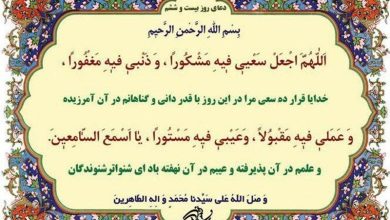 دعای روز بیست و ششم
بِسْمِ اللهِ الرَّحْمنِ الرَّحیمِ
اَللّهُمَّ اجْعَلْ سَعْیي فیهِ مَشْكُورًا ، وَ ذَنْبي فیهِ مَغْفُورًا ،
خدایا قرار ده سعی مرا در این روز با قدر دانی و گناهانم در آن آمرزیده
وَ عَمَلي فیهِ مَقْبُولاً ، وَعَیْبي فیهِ مَسْتُورًا ، یا اَسْمَعَ السّامِعینَ.
و علمم در آن پذیرفته و عیبم در آن نهفته باد ای شنواترشنوندگان
وَ صَلَّ اللهُ عَلی سَیِّدِنا مُحَمَّدٍ وَ الِهِ الطّاهِرینَ